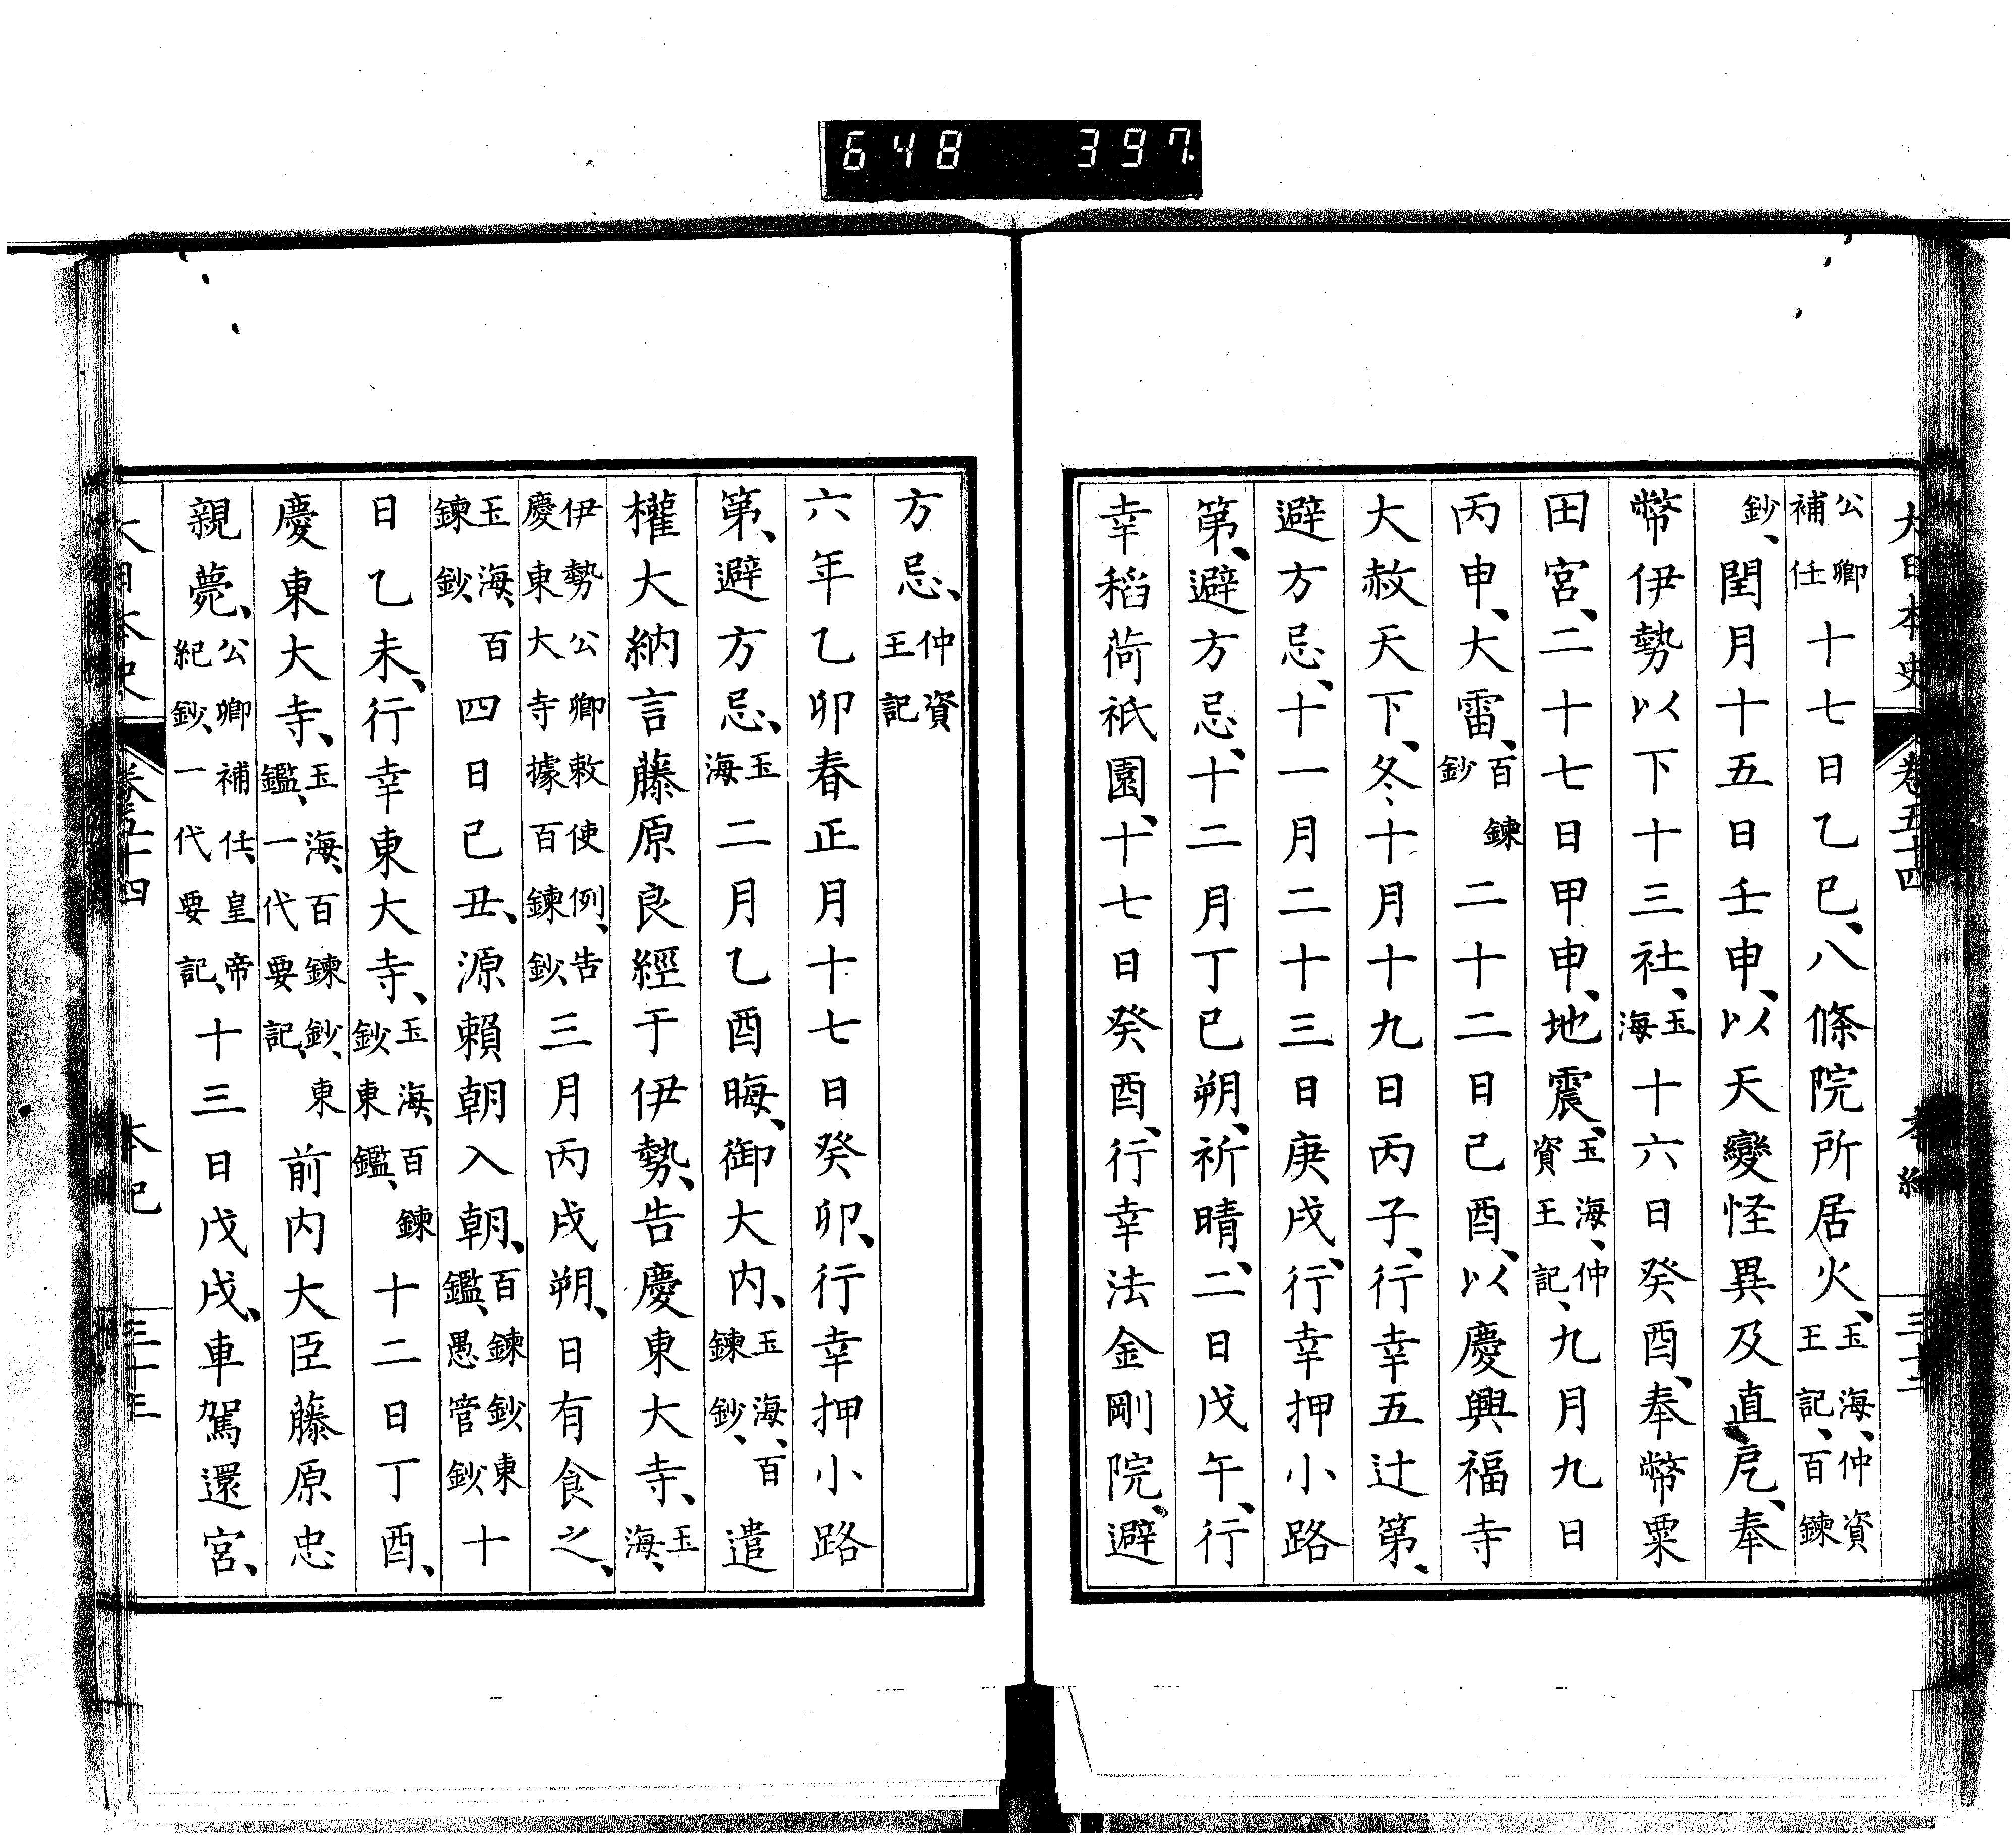 大日本史 卷五十四 本紀 三十二
公卿補任十七日乙巳、八條院所居火、玉海、仲資王記、百鍊
鈔、閏月十五日壬申、以天變怪異及直戹、奉
幣伊勢以下十三社、玉海十六日癸酉、奉幣粟
田宮、二十七日甲申、地震、玉海、仲資王記、九月九日
丙申、大雷、百鍊鈔二十二日己酉、以慶興福寺
大赦天下、冬十月十九日丙子、行幸五辻第、
避方忌、十一月二十三日庚戌、行幸押小路
第、避方忌、十二月丁巳朔、祈晴、二日戊午、行
幸稻荷祇園、十七日癸酉、行幸法金剛院、避
方忌、仲資王記
六年乙卯春正月十七日癸卯、行幸押小路
第、避方忌、玉海二月乙酉晦、御大内、玉海、百鍊鈔、遣
權大納言藤原良經于伊勢、告慶東大寺、玉海、
伊勢公卿敕使例、告慶東大寺據百鍊鈔、三月丙戌朔、日有食之、
玉海、百鍊鈔、四日己丑、源賴朝入朝、百鍊鈔東鑑、愚管鈔十
日乙未、行幸東大寺、玉海、百鍊鈔東鑑、十二日丁酉、
慶東大寺、玉海、百鍊鈔、東鑑、一代要記、前内大臣藤原忠
親薨、公卿補任、皇帝紀鈔、一代要記、十三日戊戌、車駕還宮、
大日本史 卷五十四 本紀 三十三
648 397